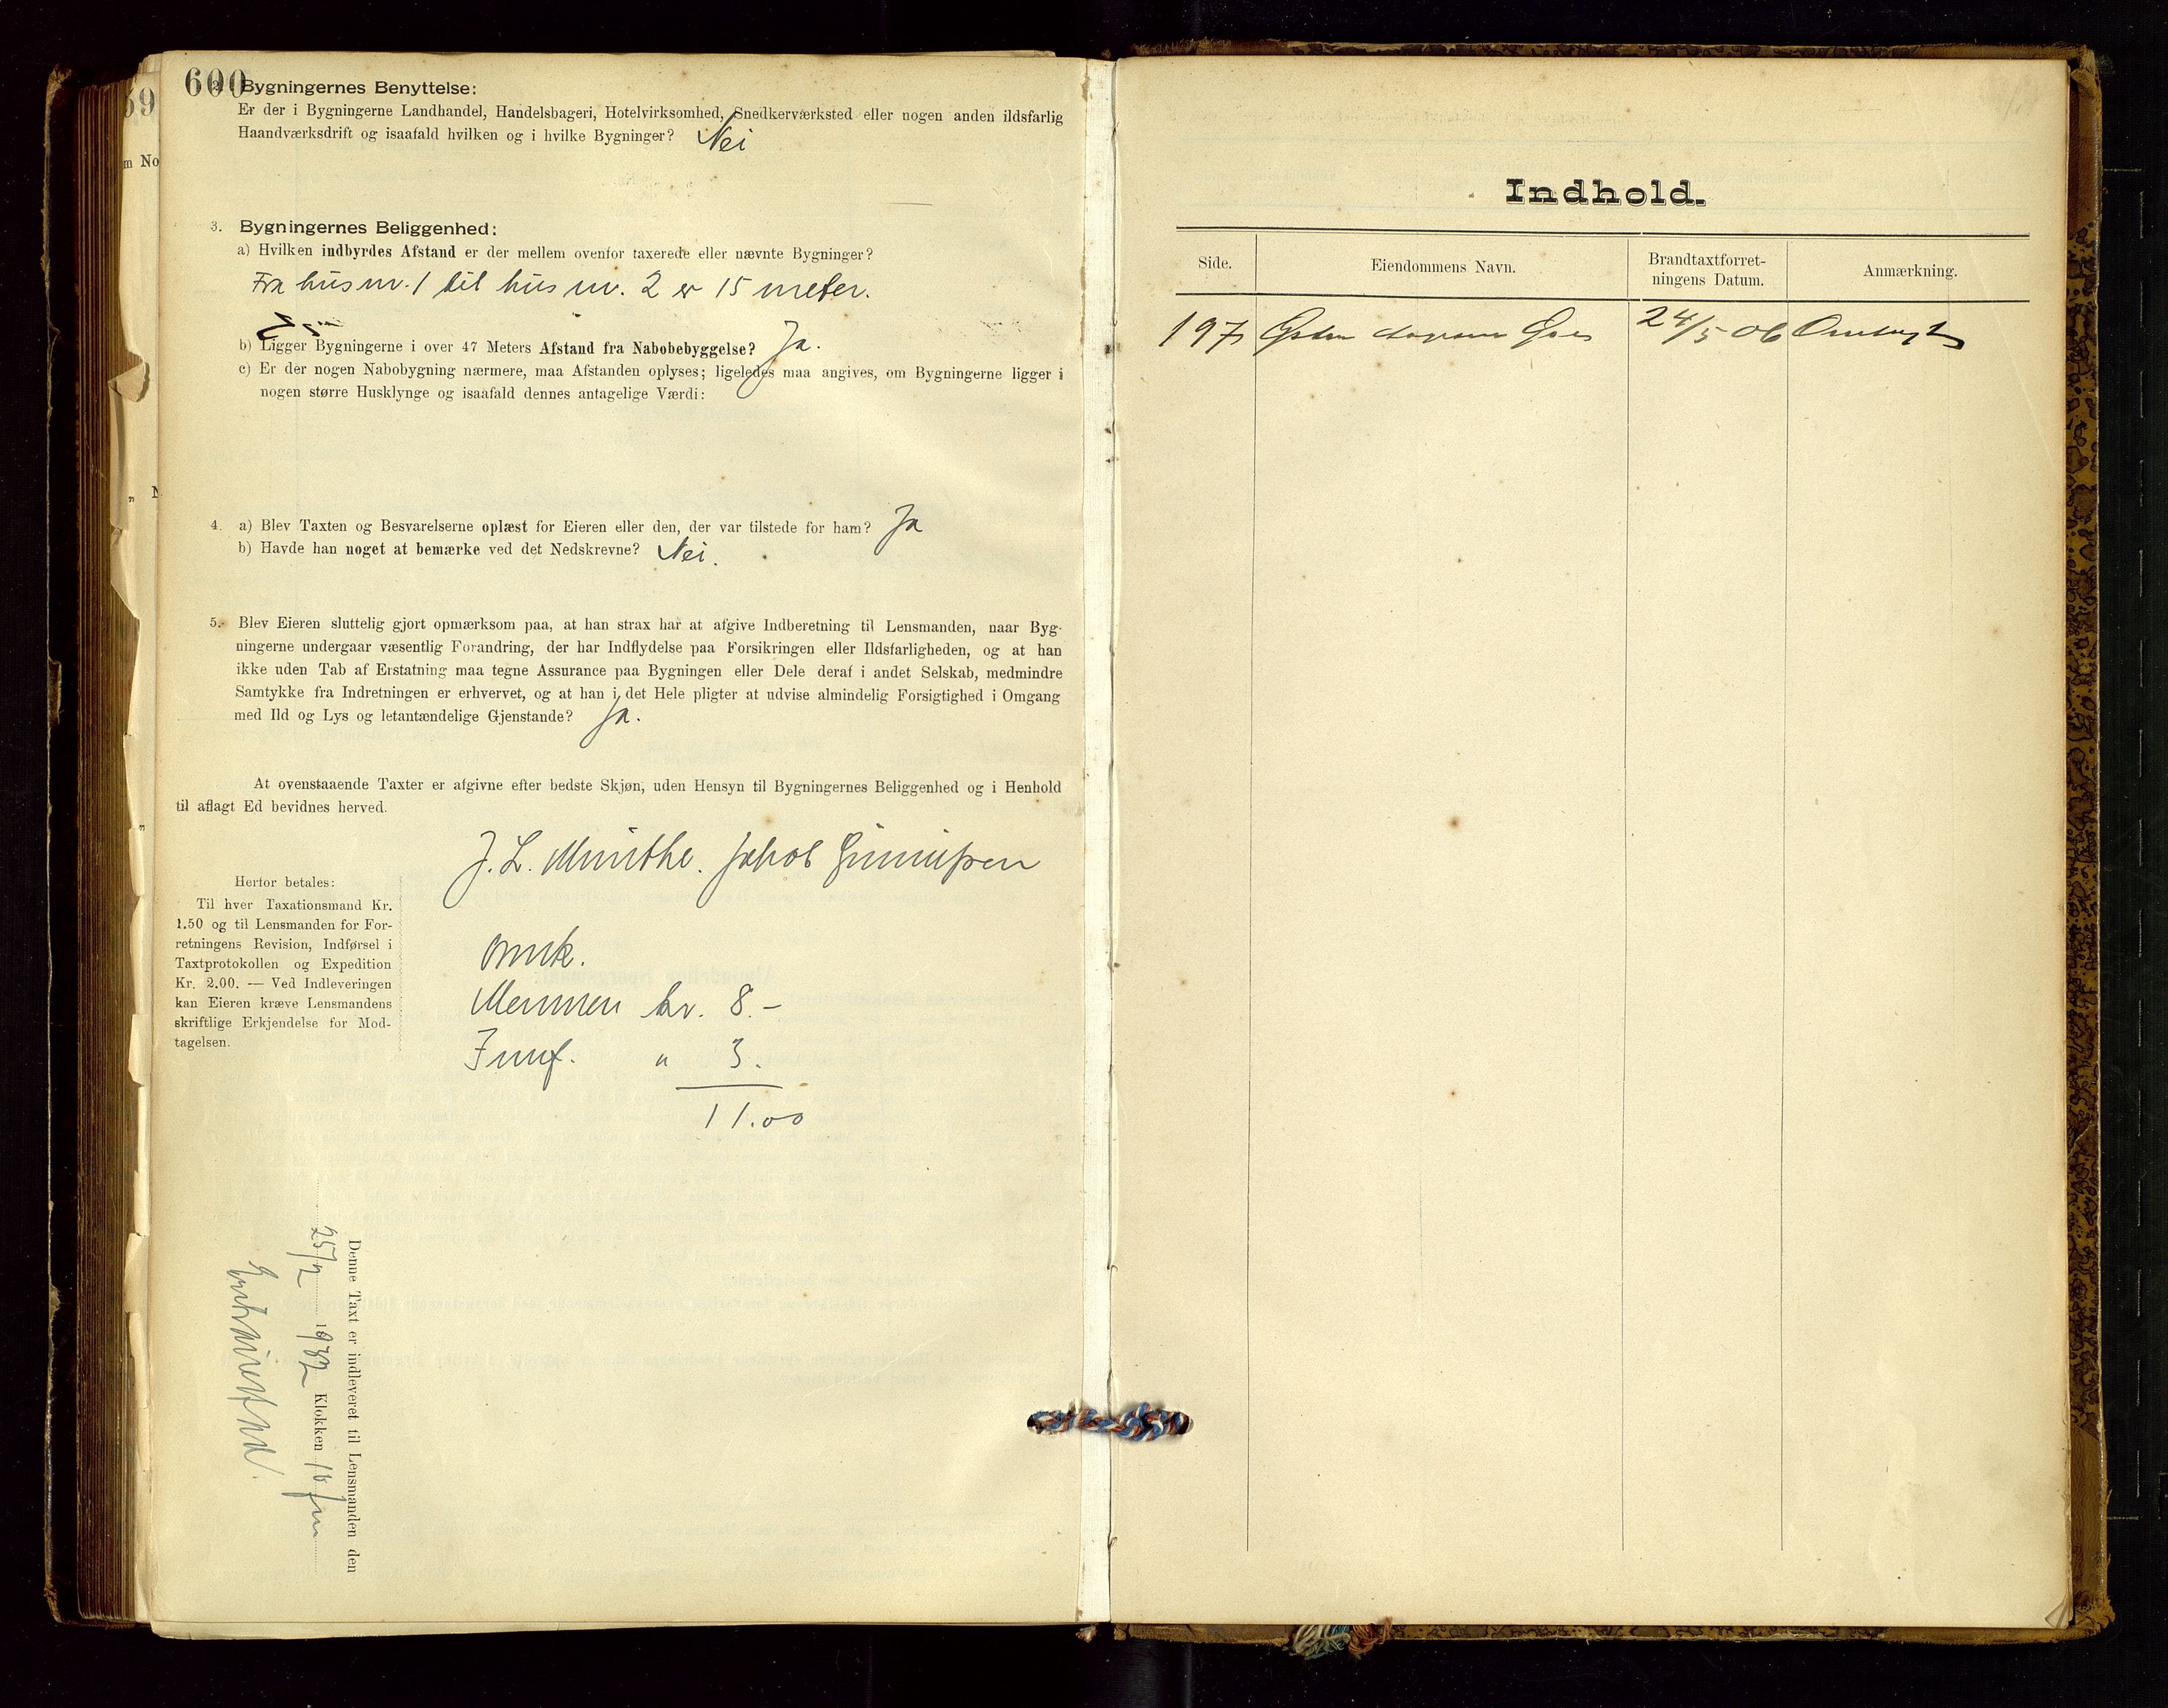 600
Bygningernes Benyttelse:
Er der i Bygningerne Landhandel, Handelsbageri, Hotelvirksomhed, Snedkerværksted eller nogen anden ildsfarlig
Haandværksdrift og isaafald hvilken og i hvilke Bygninger? Nei
3. Bygningernes Beliggenhed:
a) Hvilken indbyrdes Afstand er der mellem ovenfor taxerede eller nævnte Bygninger?
Fra hus nr. 1 til hus nr. 2 er 15 meter.
b) Ligger Bygningerne i over 47 Meters Afstand fra Nabobebyggelse? Ja.
c) Er der nogen Nabobygning nærmere, maa Afstanden oplyses; ligeledes maa angives, om Bygningerne ligger i
nogen større Husklynge og isaafald dennes antagelige Værdi:
4. a) Blev Taxten og Besvarelserne oplæst for Eieren eller den, der var tilstede for ham? Ja
b) Havde han noget at bemærke ved det Nedskrevne? Nei.
5. Blev Eieren sluttelig gjort opmærksom paa, at han strax har at afgive Indberetning til Lensmanden, naar Byg-
ningerne undergaar væsentlig Forandring, der har Indflydelse paa Forsikringen eller Ildsfarligheden, og at han
ikke uden Tab af Erstatning maa tegne Assurance paa Bygningen eller Dele deraf i andet Selskab, medmindre
Samtykke fra Indretningen er erhvervet, og at han i det Hele pligter at udvise almindelig Forsigtighed i Omgang
med Ild og Lys og letantændelige Gjenstande? Ja.
At ovenstaaende Taxter er afgivne efter bedste Skjøn, uden Hensyn til Bygningernes Beliggenhed og i Henhold
til aflagt Ed bevidnes herved.
J. L. Munthe. Jakob
Herfor betales:
Til hver Taxationsmand Kr.
1.50 og til Lensmanden for For-
retningens Revision, Indførsel i
Taxtprotokollen og Expedition
Kr. 2.00. — Ved Indleveringen
kan Eieren kræve Lensmandens
skriftlige Erkjendelse for Mod-
tagelsen.
Omk.
Mennen kr. 8.-
" 3.
11.00
Denne Taxt er indleveret til Lensmanden den
25/2 1932 Klokken 10 fm
59
m No
Indhold.
Side.
Eiendommens Navn.
Brandtaxtforret-
ningens Datum.
Anmærkning.
197
24/5 06